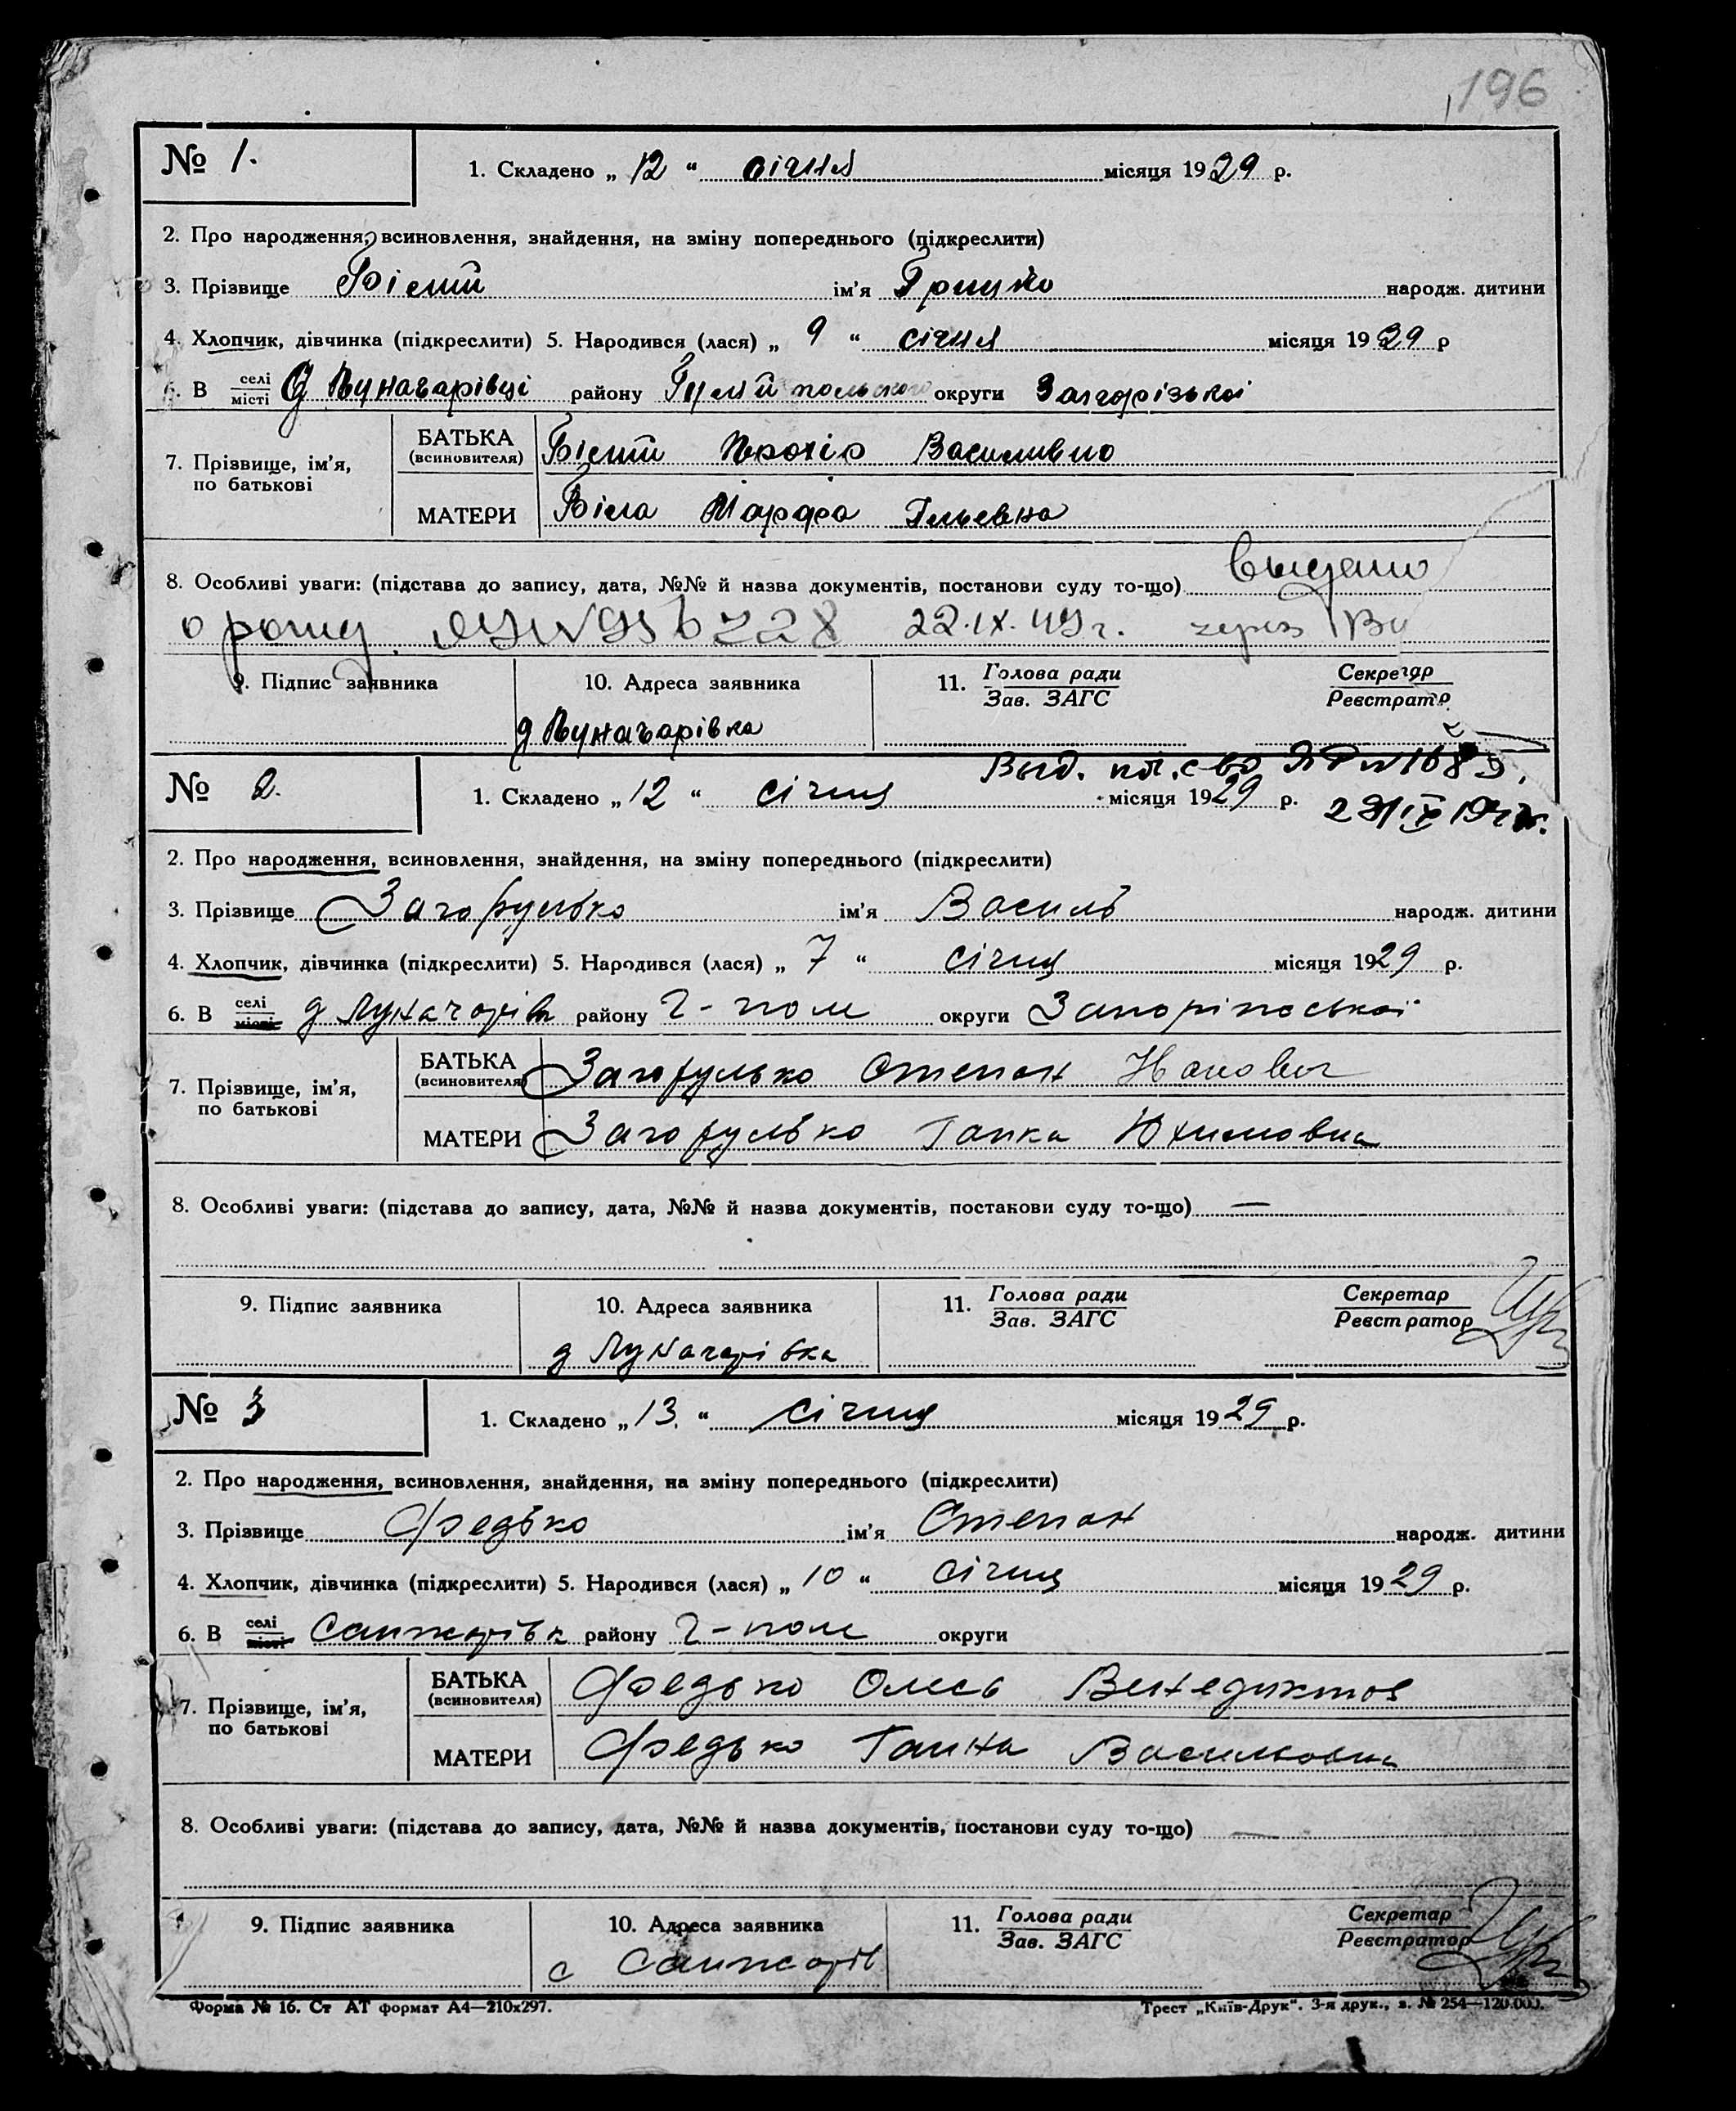 196
№ 1. 1. Складено „ 12 “ січня місяця 1929 р.
2. Про народження, всиновлення, знайдення, на зміну попереднього (підкреслити)
3. Прізвище Білий ім'я Грицько народж. дитини
4. Хлопчик, дівчинка (підкреслити) 5. Народився (лася) „ 9 “ січня місяця 1929 р
6. В селі місті д Луначарівці району Гуляйпольского округи Запорізької
7. Прізвище, ім'я, по батькові
БАТЬКА (всиновителя) Білий Прохір Василивич
МАТЕРИ Біла Марфа Ільевна
8. Особливі уваги: (підстава до запису, дата, №№ й назва документів, постанови суду то-що) выдано
о рожд. 22.IX.49 г. через
9. Підпис заявника 10. Адреса заявника 11. Голова ради Зав. ЗАГС Секретар Реєстратор
д Луначарівка
Выд. пов. с-во
№ 2. 1. Складено „ 12 “ січня місяця 1929 р.
2. Про народження, всиновлення, знайдення, на зміну попереднього (підкреслити)
3. Прізвище Загорулько ім'я Василь народж. дитини
4. Хлопчик, дівчинка (підкреслити) 5. Народився (лася) „ 7 “ січня місяця 1929 р.
6. В селі місті д Луначарівк району Г-пол округи
7. Прізвище, ім'я, по батькові
БАТЬКА (всиновителя) Загорулько Степан
МАТЕРИ Загорулько Гапка Юхимовна
8. Особливі уваги: (підстава до запису, дата, №№ й назва документів, постанови суду то-що) —
9. Підпис заявника 10. Адреса заявника 11. Голова ради Зав. ЗАГС Секретар Реєстратор
д Луначарівка
№ 3 1. Складено „ 13. “ січня місяця 1929 р.
2. Про народження, всиновлення, знайдення, на зміну попереднього (підкреслити)
3. Прізвище Федько ім'я Степан народж. дитини
4. Хлопчик, дівчинка (підкреслити) 5. Народився (лася) „ 10 “ січня місяця 1929 р.
6. В селі місті Санжарівк району Г-пол округи
7. Прізвище, ім'я, по батькові
БАТЬКА (всиновителя) Федько Олесь Венедиктов
МАТЕРИ Федько Ганна Васильовна
8. Особливі уваги: (підстава до запису, дата, №№ й назва документів, постанови суду то-що) —
9. Підпис заявника 10. Адреса заявника 11. Голова ради Зав. ЗАГС Секретар Реєстратор
с Санжарів
Форма № 16. Ст АТ формат А4—210x297. Трест „Київ-Друк“. 3-я друк., з. № 254—120.000.